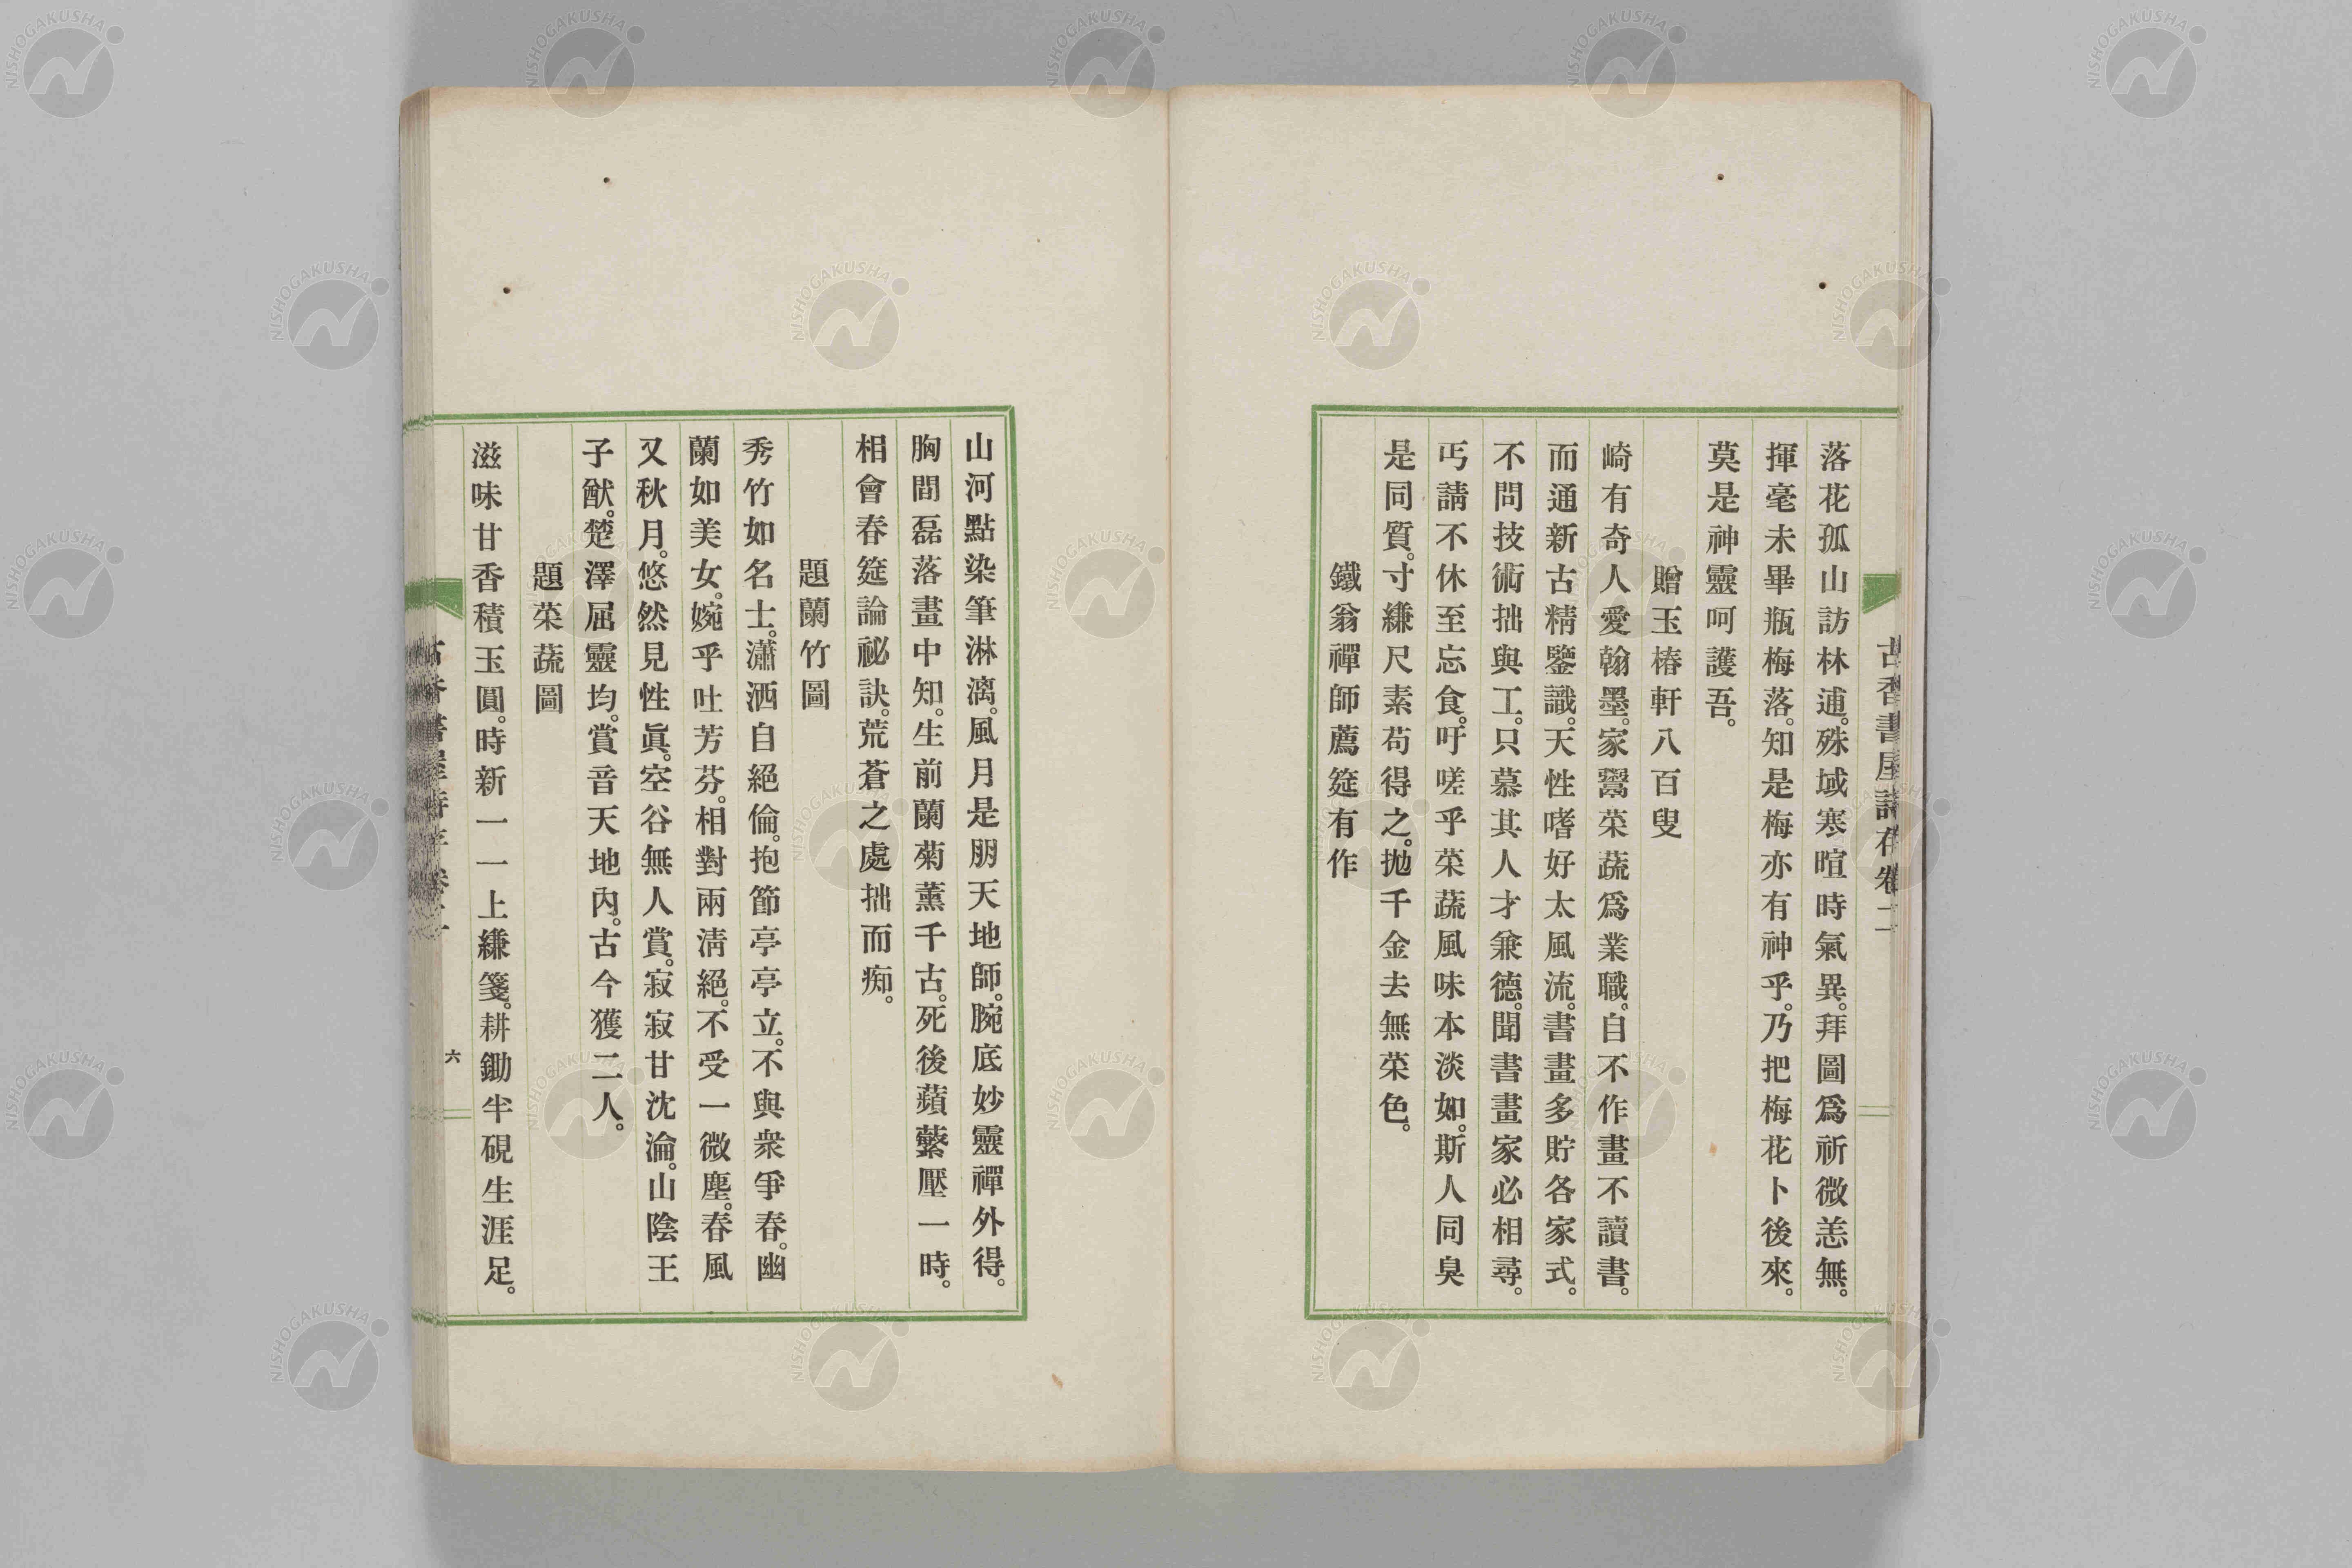 古香書屋詩存卷二
落花孤山訪林逋。殊域寒暄時氣異。拜圖爲祈微恙無。
揮毫未畢瓶梅落。知是梅亦有神乎。乃把梅花卜後來。
莫是神靈呵護吾。
贈玉椿軒八百叟
崎有奇人愛翰墨。家鬻菜蔬爲業職。自不作畫不讀書。
而通新古精鑒識。天性嗜好太風流。書畫多貯各家式。
不問技術拙與工。只慕其人才兼德。聞書畫家必相尋。
丐請不休至忘食。吁嗟乎菜蔬風味本淡如。斯人同臭
是同質。寸縑尺素苟得之。拋千金去無菜色。
鐵翁禪師薦筵有作
山河點染筆淋漓。風月是朋天地師。腕底妙靈禪外得。
胸間磊落畫中知。生前蘭菊薰千古。死後蘋蘩壓一時。
相會春筵論祕訣。荒蒼之處拙而痴。
題蘭竹圖
秀竹如名士。瀟洒自絕倫。抱節亭亭立。不與衆爭春。幽
蘭如美女。婉乎吐芳芬。相對兩淸絕。不受一微塵。春風
又秋月。悠然見性眞。空谷無人賞。寂寂甘沈淪。山陰王
子猷。楚澤屈靈均。賞音天地內。古今獲二人。
題菜蔬圖
滋味甘香積玉圓。時新一一上縑箋。耕鋤半硯生涯足。
六
NISHOGAKUSHA